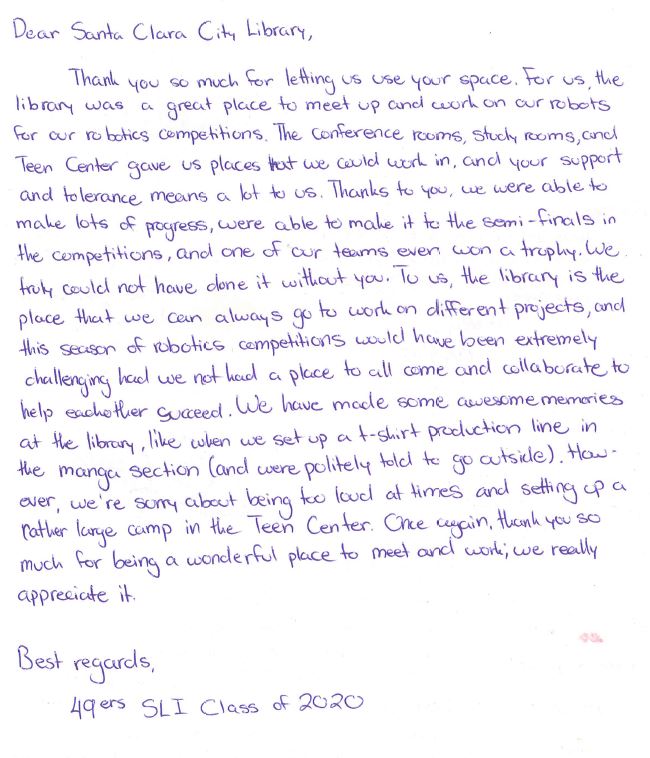 Dear Santa Clara City Library,
Thank you so much for letting us use your space. For us, the
library was a great place to meet up and work on our robots
for our robotics competitions. The conference rooms, study rooms, and
Teen Center gave us places that we could work in, and your support
and tolerance means a lot to us. Thanks to you, we were able to
make lots of progress, were able to make it to the semi-finals in
the competitions, and one of our teams even won a trophy. We
truly could not have done it without you. To us, the library is the
place that we can always go to work on different projects, and
this season of robotics competitions would have been extremely
challenging had we not had a place to all come and collaborate to
help eachother succeed. We have made some awesome memories
at the library, like when we set up a t-shirt production line in
the manga section (and were politely told to go outside). How-
ever, we're sorry about being too loud at times and setting up a
rather large camp in the Teen Center. Once again, thank you so
much for being a wonderful place to meet and work; we really
appreciate it.
Best regards,
49ers SLI Class of 2020